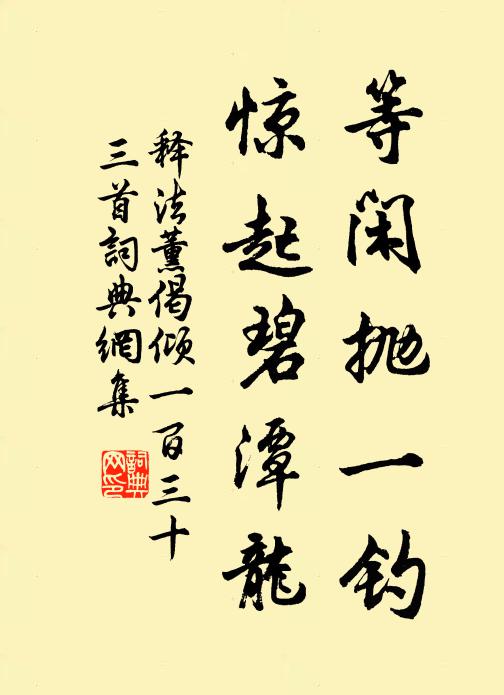 等闲抛一钓
惊起碧潭龙
释法薰偈倾一百三十
三首詞典網集
詞典网印